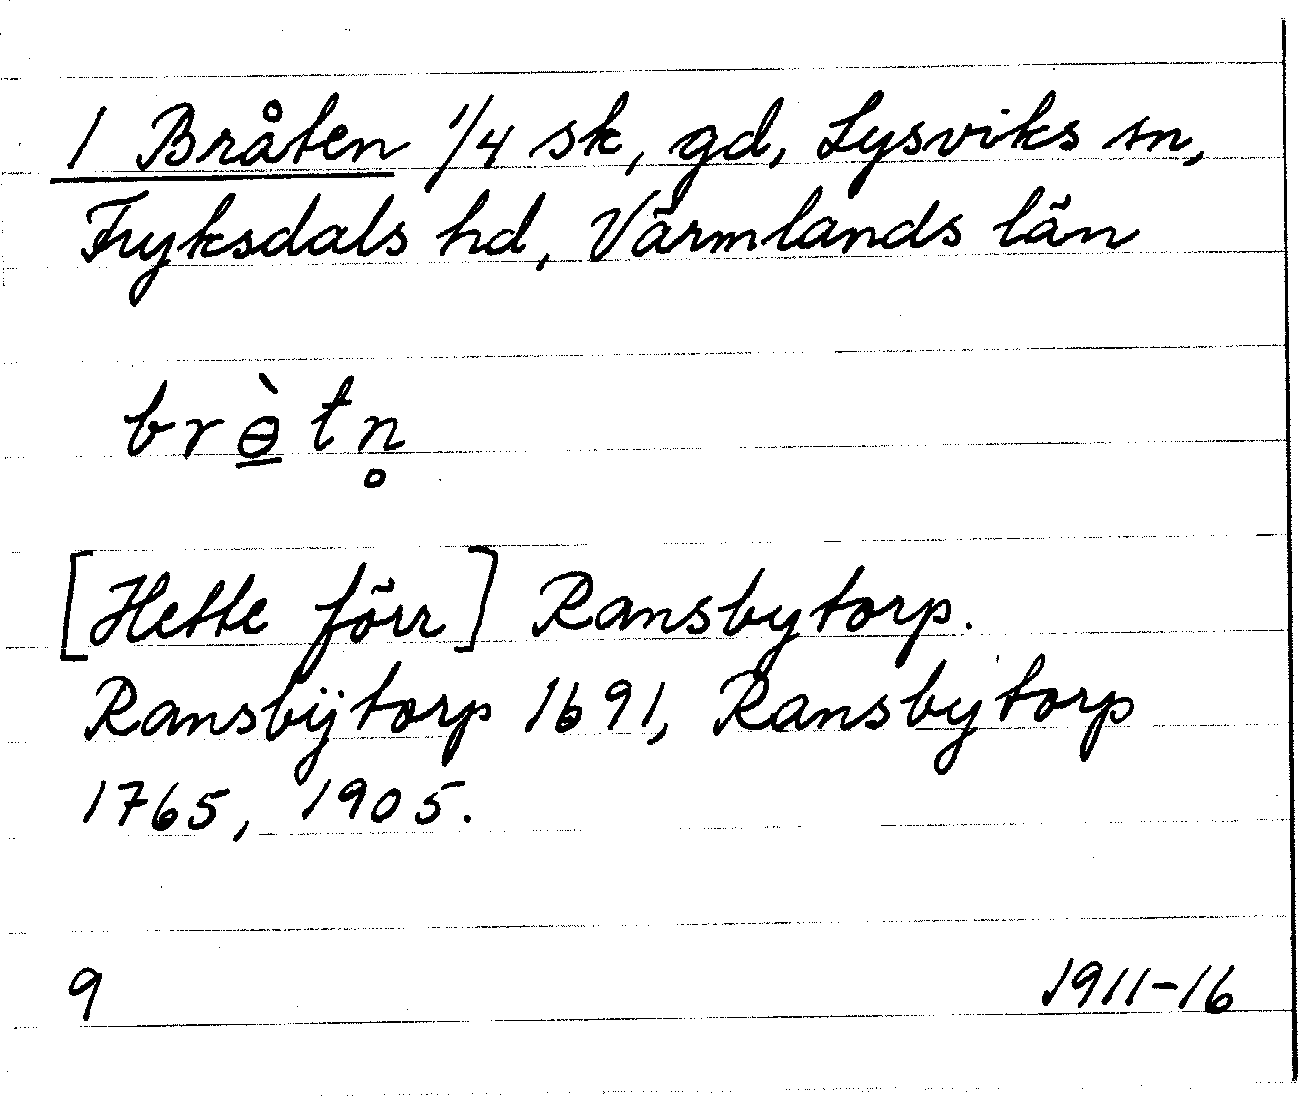 1 Bråten 1/4 sk, gd, Lysviks sn,
Fryksdals hd, Värmlands län
brɵ̲̀tn̥
[Hette förr] Ransbytorp.
Ransbÿtorp 1691, Ransbytorp
1765, 1905.
9 1911-16